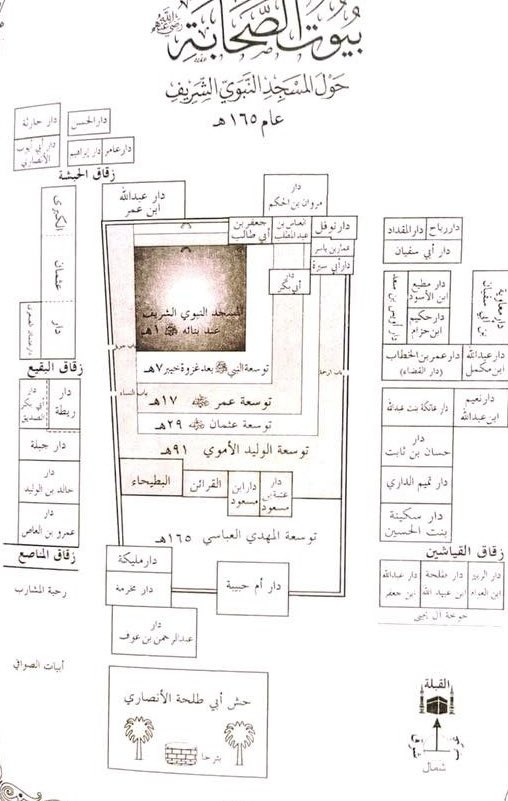 بُيُوتُ الصَّحَابَةِ
حَوْلَ المَسْجِدِ النَّبَوِيِّ الشَّرِيفِ
عام ١٦٥هـ
دار حارثة
دار الحسن
دار أبي أيوب
الأنصاري
دار إبراهيم
دار عامر
زقاق الحبشة
دار عبدالله
ابن عمر
دار
مروان بن الحكم
دار نوفل
العباس بن
عبدالمطلب
جعفر بن
أبي طالب
عمار بن ياسر
دار أبي سبرة
دار
أبي بكر
دار رباح
دار المقداد
دار أبي سفيان
دار مطيع
ابن الأسود
دار حكيم
ابن حزام
دار معاوية
بن أبي سفيان
دار عمر بن الخطاب
(دار القضاء)
دار عبدالله
ابن مكمل
دار نعيم
ابن عبدالله
دار عاتكة بنت عبدالله
دار
حسان بن ثابت
دار تميم الداري
دار سكينة
بنت الحسين
زقاق القياشين
دار الزبير
ابن العوام
دار طلحة
ابن عبيد الله
دار عبدالله
ابن جعفر
دار عثمان الكبرى
زقاق البقيع
دار
ريطة
دار
أبي بكر
الصديق
دار جبلة
دار
خالد بن الوليد
دار
عمرو بن العاص
زقاق المناصع
رحبة المشارب
أبيات الصوافي
المسجد النبوي الشريف
عند بنائه ﷺ ١هـ
توسعة النبي ﷺ بعد غزوة خيبر ٧هـ
توسعة عمر ﵁ ١٧هـ
توسعة عثمان ﵁ ٢٩هـ
توسعة الوليد الأموي ٩١هـ
باب النساء
البطيحاء
القرائن
دار ابن
مسعود
دار
عتبة بن
مسعود
توسعة المهدي العباسي ١٦٥هـ
دار مليكة
دار مخرمة
دار أم حبيبة
دار
عبدالرحمن بن عوف
حش أبي طلحة الأنصاري
بئر حا
القبلة
شرق
شمال